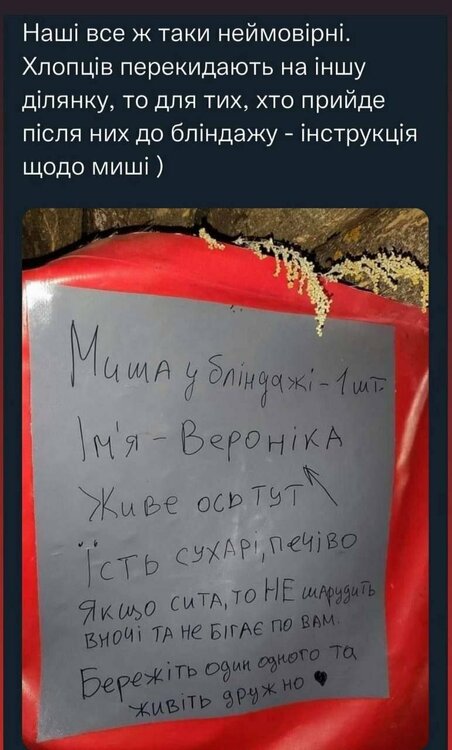 Наші все ж таки неймовірні.
Хлопців перекидають на іншу
ділянку, то для тих, хто прийде
після них до бліндажу - інструкція
щодо миші )
Миша у бліндажі - 1 шт.
Ім'я - Вероніка
Живе ось тут ↖
Їсть сухарі, печіво
Якщо сита, то НЕ шарудить
вночі та не бігає по вам.
Бережіть один одного та
живіть дружно ♥